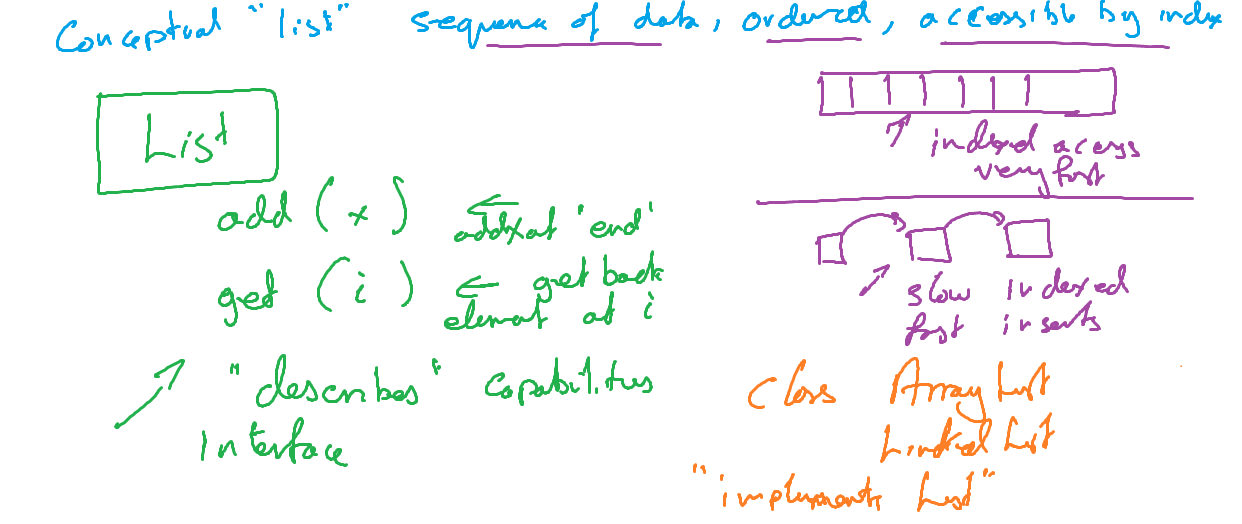 Conceptual "list" sequence of data, ordered, accessible by index
List
add (x) ← add x at 'end'
get (i) ← get back
element at i
"describes" capabilities
interface
indexed access
very fast
slow indexed
fast inserts
class ArrayList
LinkedList
"implements List"